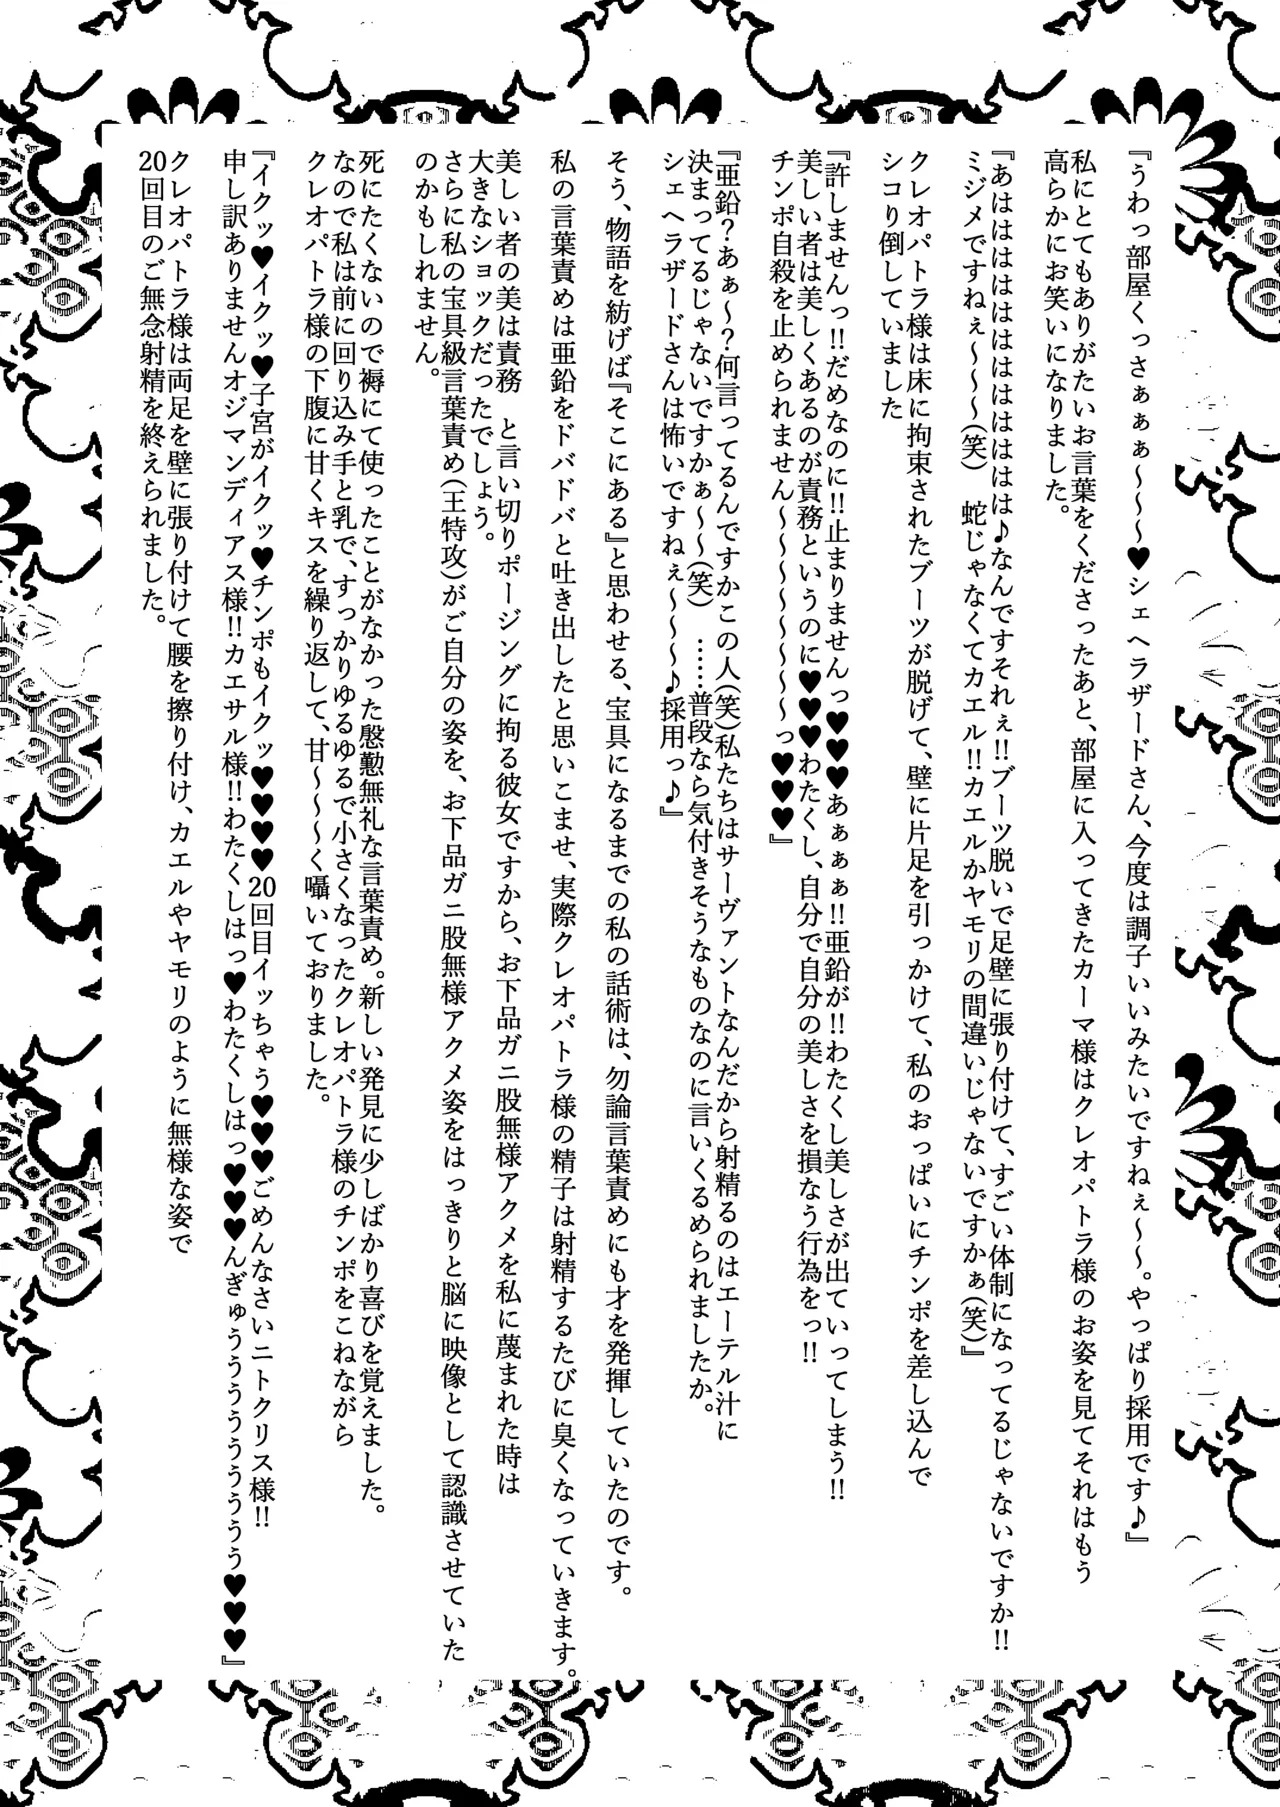 『うわっ部屋くっさぁぁぁ～～～♥シェヘラザードさん、今度は調子いいみたいですねぇ～～。やっぱり採用です♪』
私にとてもありがたいお言葉をくださったあと、部屋に入ってきたカーマ様はクレオパトラ様のお姿を見てそれはもう
高らかにお笑いになりました。
『あはははははははははははははは♪なんですそれぇ!!ブーツ脱いで足壁に張り付けて、すごい体制になってるじゃないですか!!
ミジメですねぇ～～～～(笑)　蛇じゃなくてカエル!!カエルかヤモリの間違いじゃないですかぁ(笑)』
クレオパトラ様は床に拘束されたブーツが脱げて、壁に片足を引っかけて、私のおっぱいにチンポを差し込んで
シコり倒していました
『許しませんっ!!だめなのに!!止まりませんっ♥♥♥あぁぁぁ!!亜鉛が!!わたくし美しさが出ていってしまう!!
美しい者は美しくあるのが責務というのに♥♥♥♥わたくし、自分で自分の美しさを損なう行為をっ!!
チンポ自殺を止められません～～～～～～～～っ♥♥♥』
『亜鉛？あぁ～？何言ってるんですかこの人(笑)私たちはサーヴァントなんだから射精るのはエーテル汁に
決まってるじゃないですかぁ～～(笑)　……普段なら気付きそうなものなのに言いくるめられましたか。
シェヘラザードさんは怖いですねぇ～～～♪採用っ♪』
そう、物語を紡げば『そこにある』と思わせる、宝具になるまでの私の話術は、勿論言葉責めにも才を発揮していたのです。
私の言葉責めは亜鉛をドバドバと吐き出したと思いこませ、実際クレオパトラ様の精子は射精するたびに臭くなっていきます。
美しい者の美は責務　と言い切りポージングに拘る彼女ですから、お下品ガニ股無様アクメを私に蔑まれた時は
大きなショックだったでしょう。
さらに私の宝具級言葉責め(王特攻)がご自分の姿を、お下品ガニ股無様アクメ姿をはっきりと脳に映像として認識させていた
のかもしれません。
死にたくないので褥にて使ったことがなかった慇懃無礼な言葉責め。新しい発見に少しばかり喜びを覚えました。
なので私は前に回り込み手と乳で、すっかりゆるゆるで小さくなったクレオパトラ様のチンポをこねながら
クレオパトラ様の下腹に甘くキスを繰り返して、甘～～～く囁いておりました。
『イクッ♥イクッ♥子宮がイクッ♥チンポもイクッ♥♥♥♥♥20回目イッちゃう♥♥♥♥ごめんなさいニトクリス様!!
申し訳ありませんオジマンディアス様!!カエサル様!!わたくしはっ♥わたくしはっ♥♥♥♥んぎゅううううううううう♥♥♥♥』
クレオパトラ様は両足を壁に張り付けて腰を擦り付け、カエルやヤモリのように無様な姿で
20回目のご無念射精を終えられました。